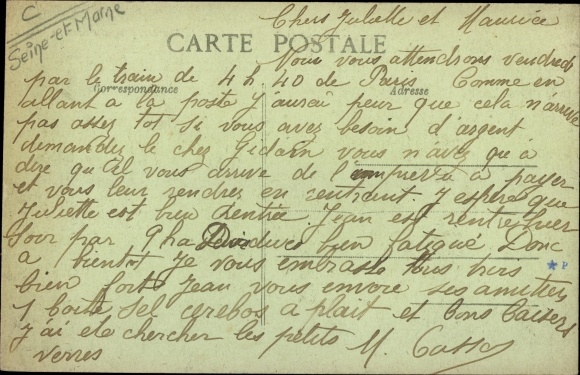 C
Seine-et-Marne
Chers Juliette et Maurice
CARTE POSTALE
Nous vous attendrons vendredi
par le train de 4 h 40 de Paris Comme en
Correspondance
Adresse
allant a la poste J aurai peur que cela n'arrive
pas assez tot si vous avez besoin d'argent
demandez le chez vous n'avez qu a
dire qu'il vous arrive de l' a payer
et vous leur rendrez en rentrant. J espere que
Juliette est bien rentrée Jean est rentré hier
Soir par 9 h bien fatigué Donc
a bientot Je vous embrasse tous
bien fort Jean vous envoie ses amitiés
1 boite sel cerebos a plait et bons baisers
J'ai ete chercher les petits M.
verres